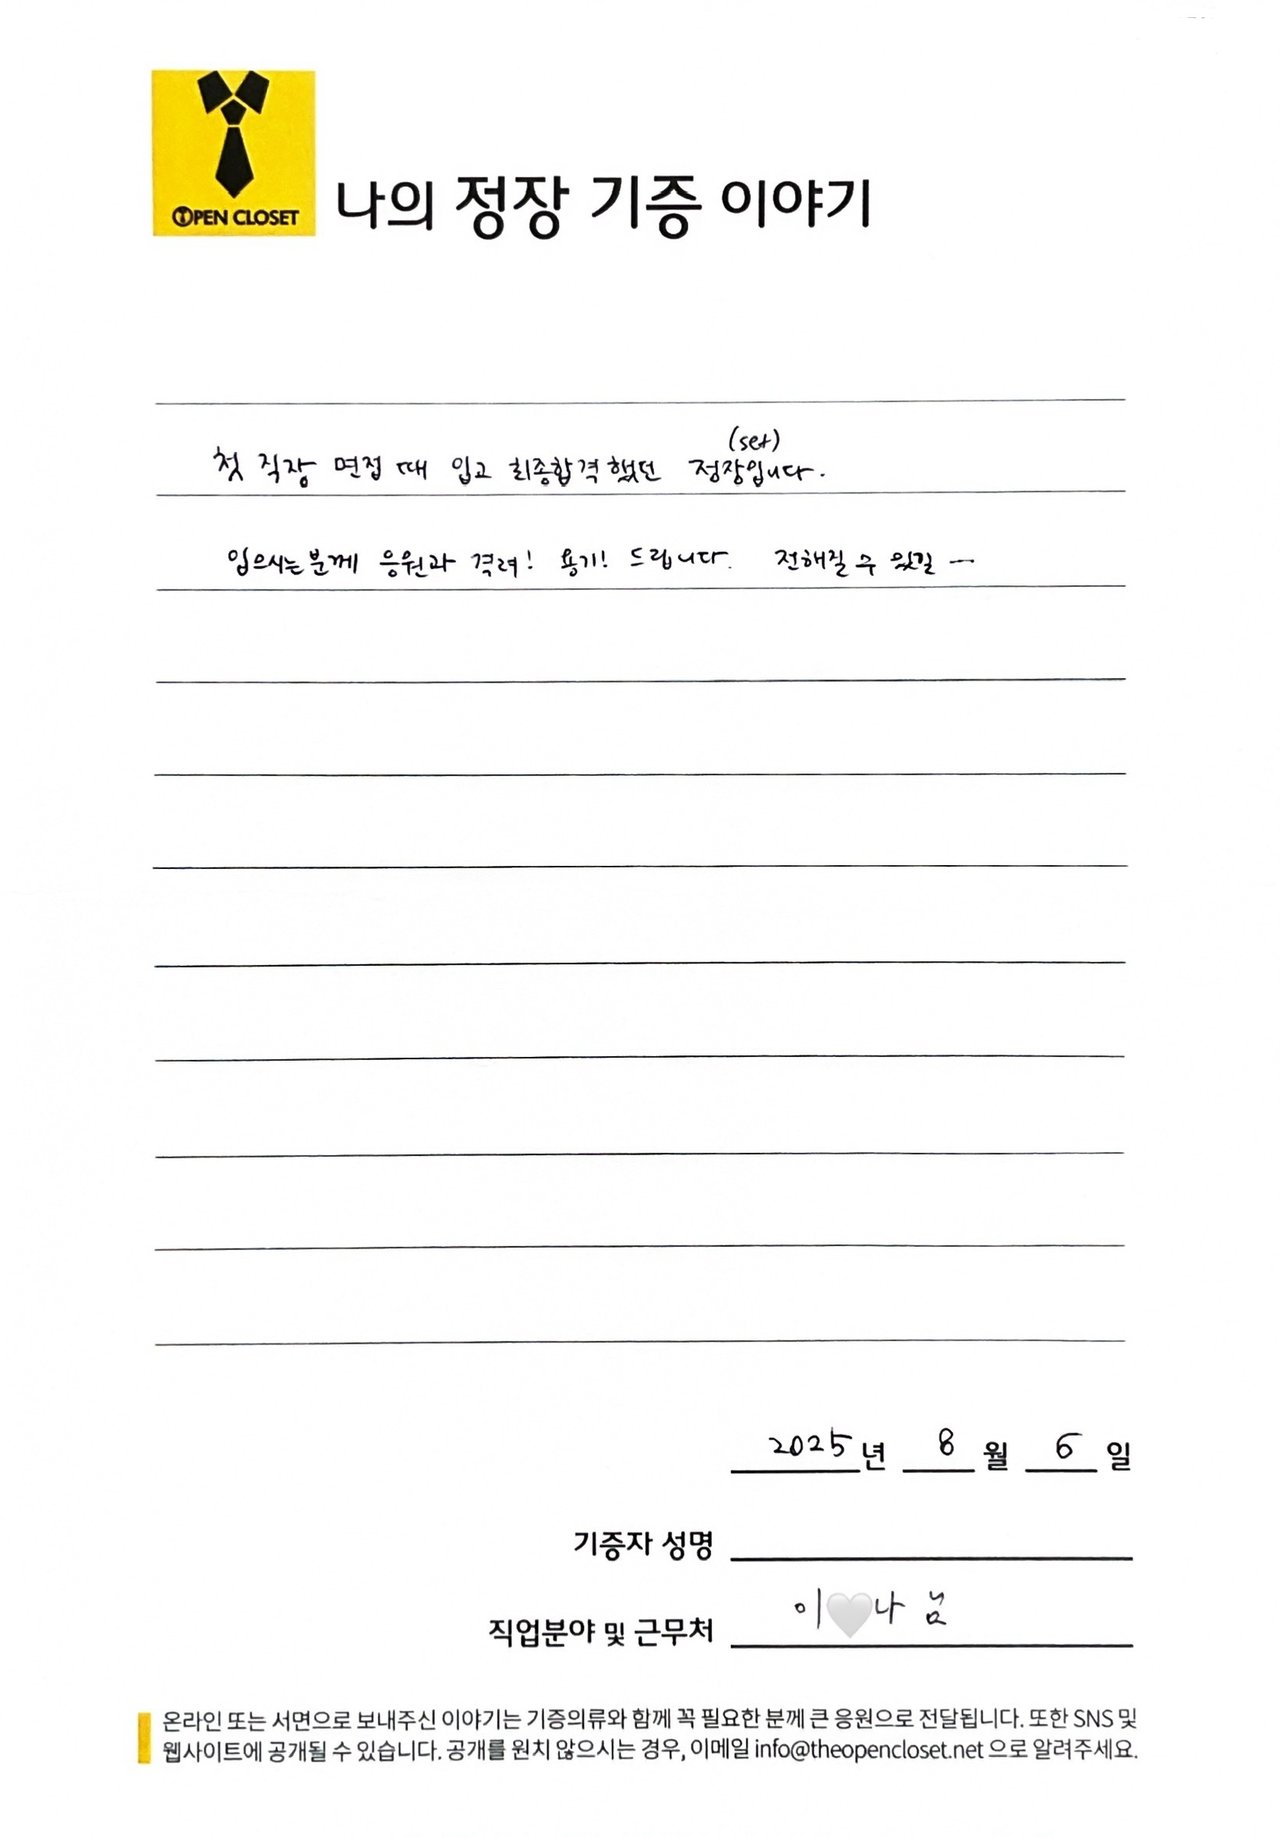 OPEN CLOSET
나의 정장 기증 이야기
(set)
첫 직장 면접 때 입고 최종합격했던 정장입니다.
입으시는분께 응원과 격려! 용기! 드립니다. 전해질 수 있길 ㅡ
2025년 8월 6일
기증자 성명
직업분야 및 근무처 이🤍나 님
온라인 또는 서면으로 보내주신 이야기는 기증의류와 함께 꼭 필요한 분께 큰 응원으로 전달됩니다. 또한 SNS 및
웹사이트에 공개될 수 있습니다. 공개를 원치 않으시는 경우, 이메일 info@theopencloset.net 으로 알려주세요.